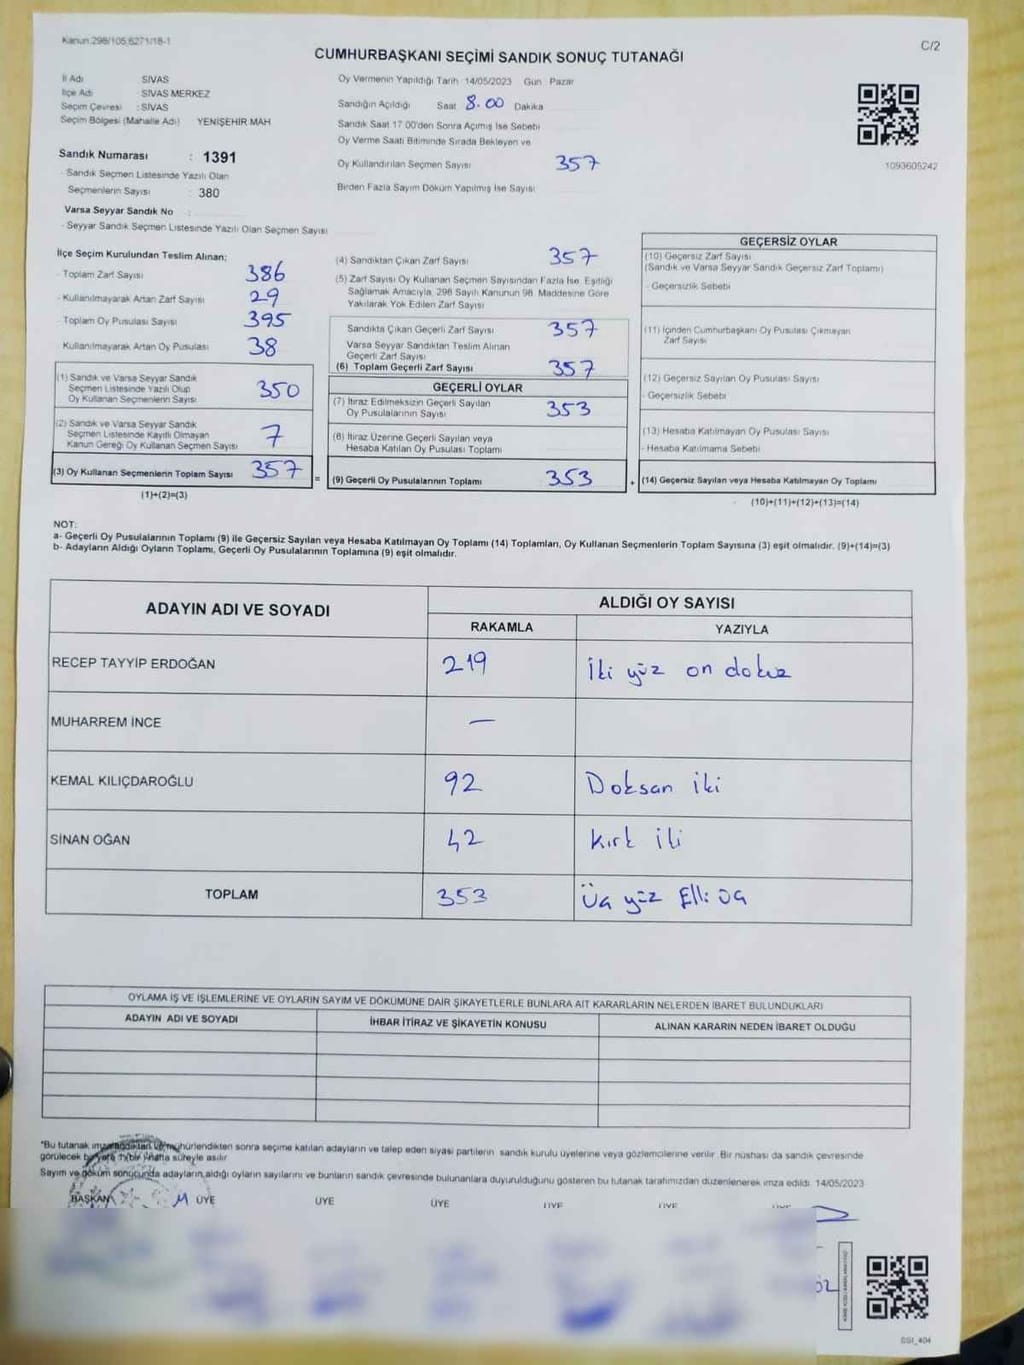 Kanun:298/105,6271/18-1
C/2
CUMHURBAŞKANI SEÇİMİ SANDIK SONUÇ TUTANAĞI
İl Adı SİVAS
İlçe Adı : SİVAS MERKEZ
Seçim Çevresi : SİVAS
Seçim Bölgesi (Mahalle Adı) YENİŞEHİR MAH
Sandık Numarası : 1391
Sandık Seçmen Listesinde Yazılı Olan
Seçmenlerin Sayısı : 380
Varsa Seyyar Sandık No :
- Seyyar Sandık Seçmen Listesinde Yazılı Olan Seçmen Sayısı
Oy Vermenin Yapıldığı Tarih 14/05/2023 Gün Pazar
Sandığın Açıldığı Saat 8.00 Dakika
Sandık Saat 17 00'den Sonra Açımış İse Sebebi
Oy Verme Saati Bitiminde Sırada Bekleyen ve
Oy Kullandırılan Seçmen Sayısı 357
Birden Fazla Sayım Döküm Yapılmış İse Sayısı
1093605242
İlçe Seçim Kurulundan Teslim Alınan;
- Toplam Zarf Sayısı 386
- Kullanılmayarak Artan Zarf Sayısı 29
- Toplam Oy Pusulası Sayısı 395
Kullanılmayarak Artan Oy Pusulası 38
(1) Sandık ve Varsa Seyyar Sandık
Seçmen Listesinde Yazılı Olup
Oy Kullanan Seçmenlerin Sayısı 350
(2) Sandık ve Varsa Seyyar Sandık
Seçmen Listesinde Kayıtlı Olmayan
Kanun Gereği Oy Kullanan Seçmen Sayısı 7
(3) Oy Kullanan Seçmenlerin Toplam Sayısı 357 =
(1)+(2)=(3)
(4) Sandıktan Çıkan Zarf Sayısı 357
(5) Zarf Sayısı Oy Kullanan Seçmen Sayısından Fazla İse, Eşitliği
Sağlamak Amacıyla, 298 Sayılı Kanunun 98. Maddesine Göre
Yakılarak Yok Edilen Zarf Sayısı
Sandıkta Çıkan Geçerli Zarf Sayısı 357
Varsa Seyyar Sandıktan Teslim Alınan
Geçerli Zarf Sayısı
(6) Toplam Geçerli Zarf Sayısı 357
GEÇERLİ OYLAR
(7) İtiraz Edilmeksizin Geçerli Sayılan
Oy Pusulalarının Sayısı 353
(8) İtiraz Üzerine Geçerli Sayılan veya
Hesaba Katılan Oy Pusulası Toplamı
(9) Geçerli Oy Pusulalarının Toplamı 353 +
GEÇERSİZ OYLAR
(10) Geçersiz Zarf Sayısı
(Sandık ve Varsa Seyyar Sandık Geçersiz Zarf Toplamı)
- Geçersizlik Sebebi
(11) İçinden Cumhurbaşkanı Oy Pusulası Çıkmayan
Zarf Sayısı
(12) Geçersiz Sayılan Oy Pusulası Sayısı
- Geçersizlik Sebebi
(13) Hesaba Katılmayan Oy Pusulası Sayısı
- Hesaba Katılmama Sebebi
(14) Geçersiz Sayılan veya Hesaba Katılmayan Oy Toplamı
(10)+(11)+(12)+(13)=(14)
NOT:
a- Geçerli Oy Pusulalarının Toplamı (9) ile Geçersiz Sayılan veya Hesaba Katılmayan Oy Toplamı (14) Toplamları, Oy Kullanan Seçmenlerin Toplam Sayısına (3) eşit olmalıdır. (9)+(14)=(3)
b- Adayların Aldığı Oyların Toplamı, Geçerli Oy Pusulalarının Toplamına (9) eşit olmalıdır.
ADAYIN ADI VE SOYADI ALDIĞI OY SAYISI
RAKAMLA YAZIYLA
RECEP TAYYİP ERDOĞAN 219 İki yüz on dokuz
MUHARREM İNCE —
KEMAL KILIÇDAROĞLU 92 Doksan iki
SİNAN OĞAN 42 Kırk iki
TOPLAM 353 Üç yüz Elli üç
OYLAMA İŞ VE İŞLEMLERİNE VE OYLARIN SAYIM VE DÖKÜMÜNE DAİR ŞİKAYETLERLE BUNLARA AİT KARARLARIN NELERDEN İBARET BULUNDUKLARI
ADAYIN ADI VE SOYADI İHBAR İTİRAZ VE ŞİKAYETİN KONUSU ALINAN KARARIN NEDEN İBARET OLDUĞU
*Bu tutanak imzalandıktan ve mühürlendikten sonra seçime katılan adayların ve talep eden siyasi partilerin sandık kurulu üyelerine veya gözlemcilerine verilir. Bir nüshası da sandık çevresinde
görülecek bir yere 1 (bir) hafta süreyle asılır.
Sayım ve döküm sonucunda adayların aldığı oyların sayılarını ve bunların sandık çevresinde bulunanlara duyurulduğunu gösteren bu tutanak tarafımızdan düzenlenerek imza edildi. 14/05/2023
BAŞKAN ÜYE ÜYE ÜYE ÜYE ÜYE
SSI_404